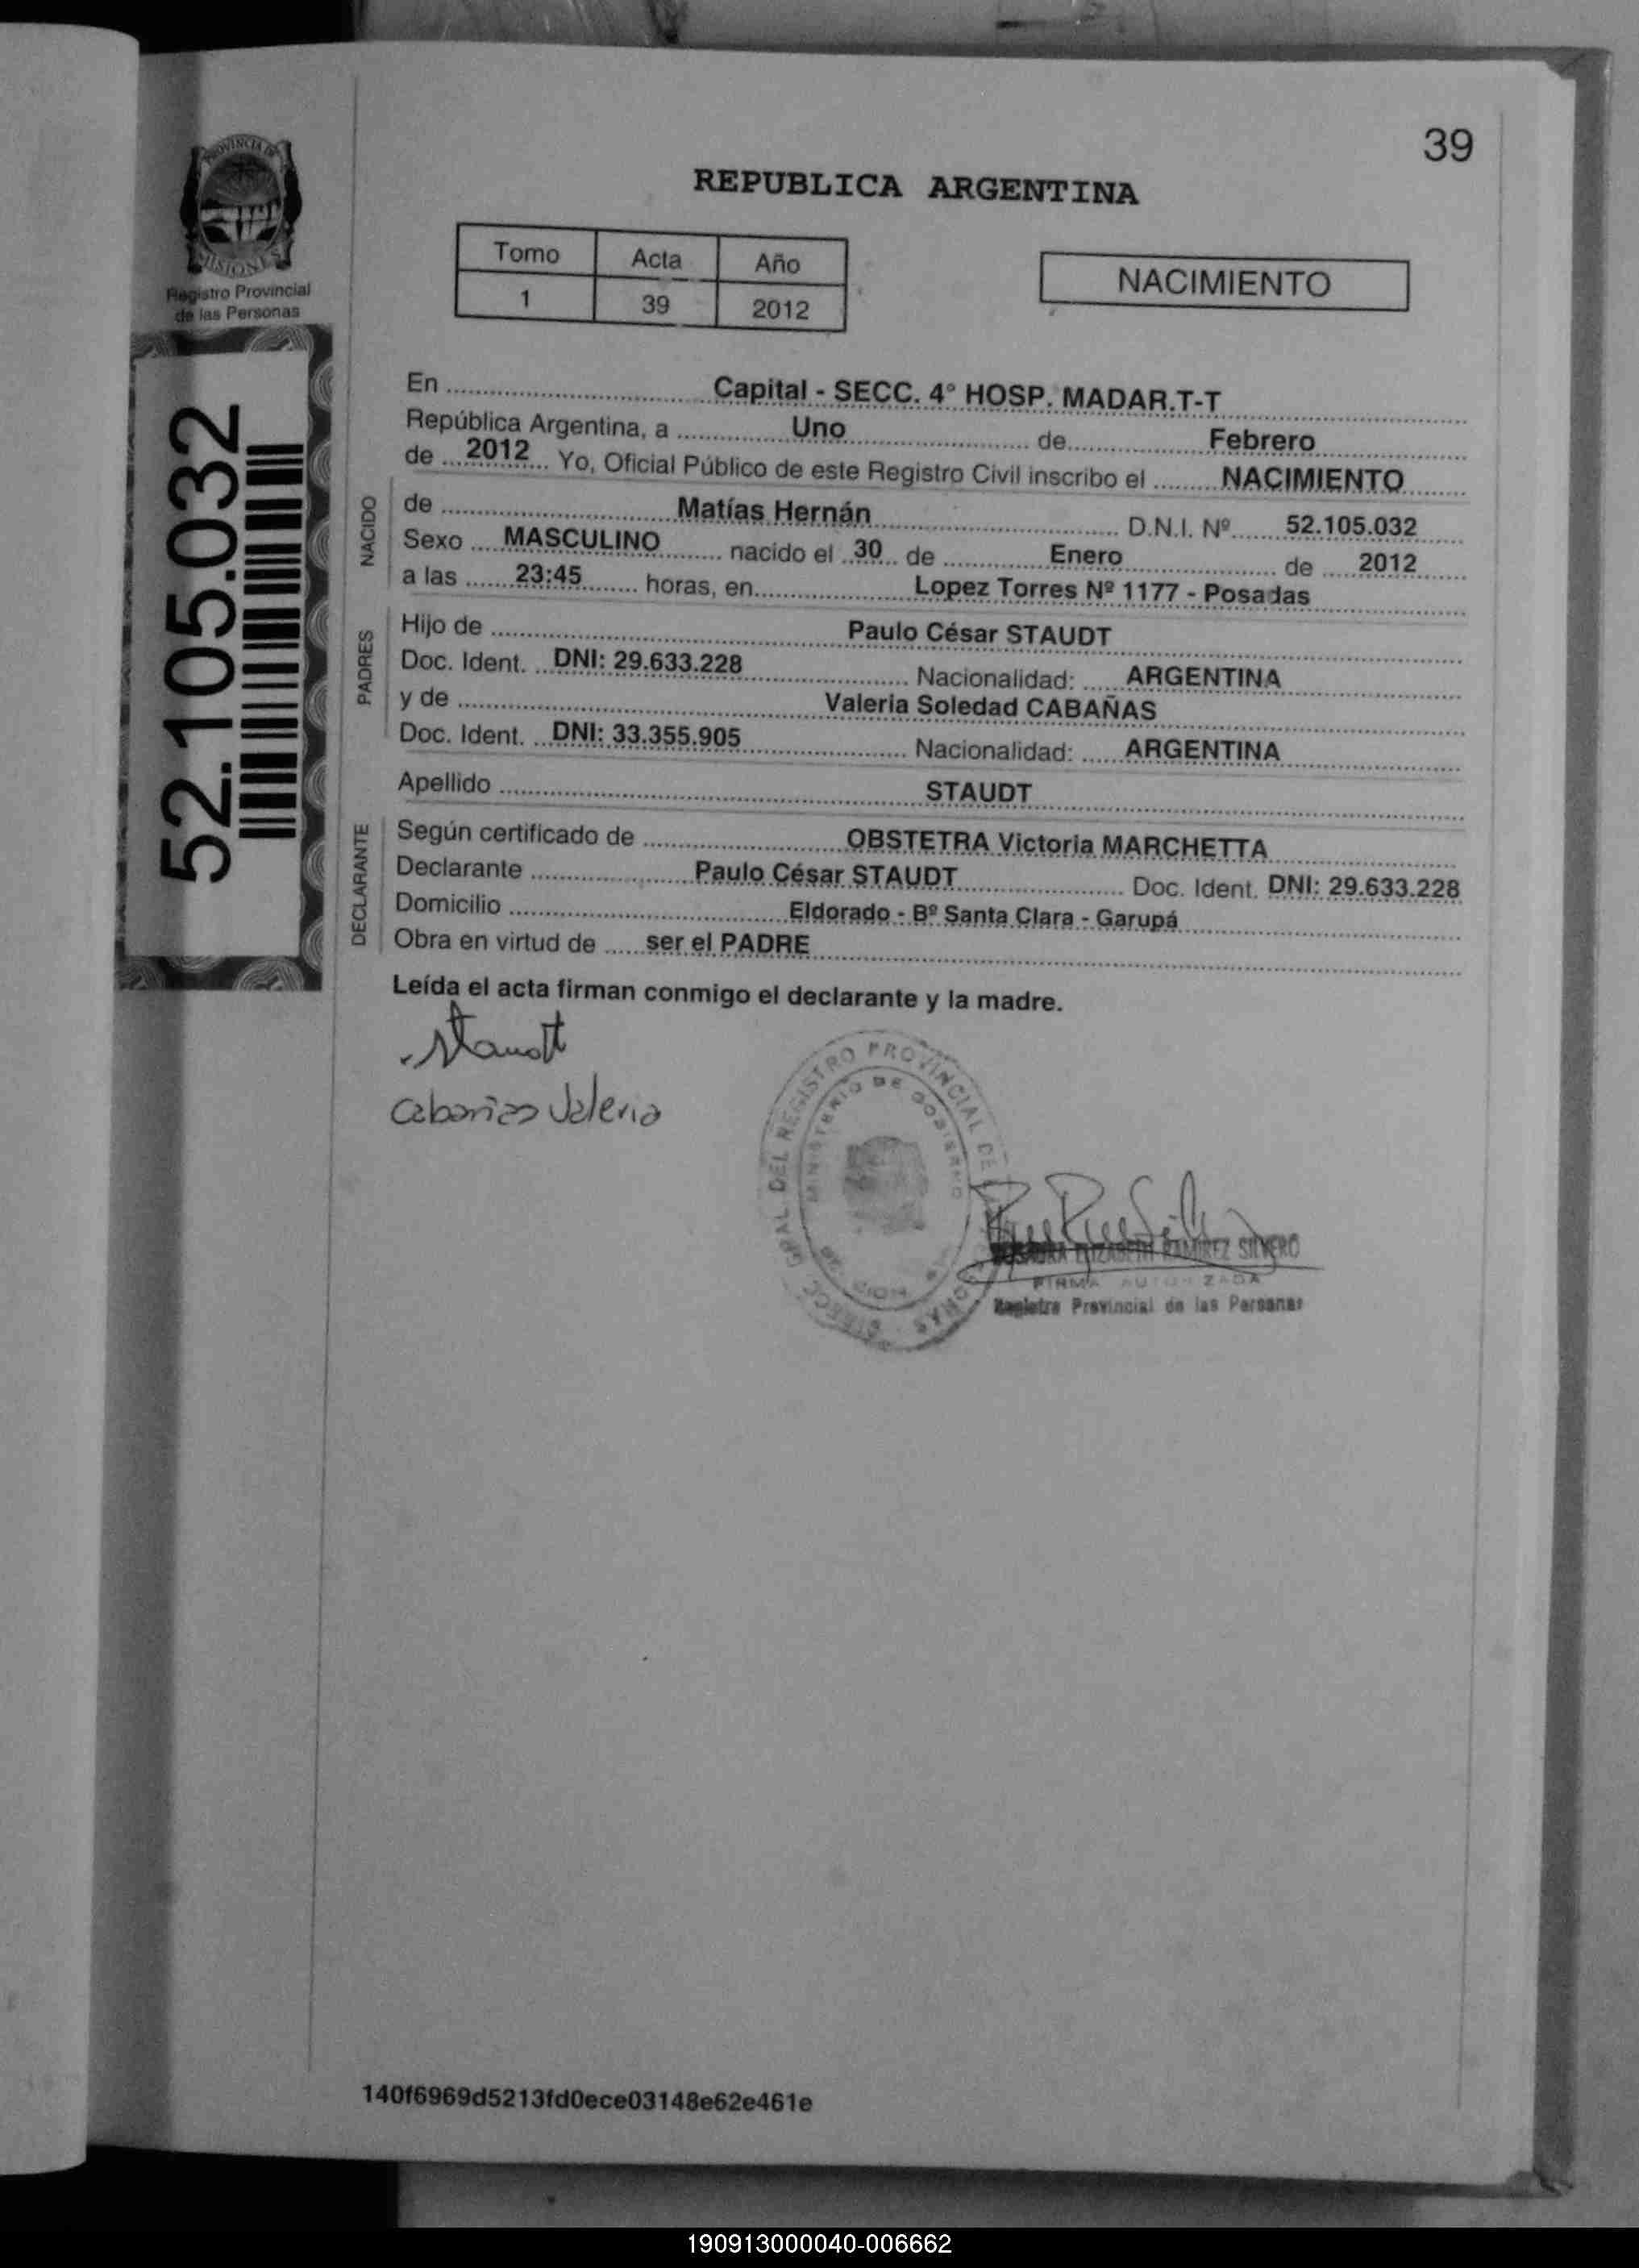 39
REPUBLICA ARGENTINA
PROVINCIA DE
MISIONES
Registro Provincial
de las Personas
Tomo Acta Año
1 39 2012
NACIMIENTO
52.105.032
En Capital - SECC. 4° HOSP. MADAR.T-T
República Argentina, a Uno de Febrero
de 2012 Yo, Oficial Público de este Registro Civil inscribo el NACIMIENTO
NACIDO
de Matías Hernán D.N.I. Nº 52.105.032
Sexo MASCULINO nacido el 30 de Enero de 2012
a las 23:45 horas, en Lopez Torres Nº 1177 - Posadas
PADRES
Hijo de Paulo César STAUDT
Doc. Ident. DNI: 29.633.228 Nacionalidad: ARGENTINA
y de Valeria Soledad CABAÑAS
Doc. Ident. DNI: 33.355.905 Nacionalidad: ARGENTINA
Apellido STAUDT
DECLARANTE
Según certificado de OBSTETRA Victoria MARCHETTA
Declarante Paulo César STAUDT Doc. Ident. DNI: 29.633.228
Domicilio Eldorado - Bº Santa Clara - Garupá
Obra en virtud de ser el PADRE
Leída el acta firman conmigo el declarante y la madre.
Staudt
Cabañas Valeria
GRAL DEL REGISTRO PROVINCIAL DE
MINISTERIO DE GOBIERNO
ELIZABETH RAMIREZ SILVERO
FIRMA AUTORIZADA
Registro Provincial de las Personas
140f6969d5213fd0ece03148e62e461e
190913000040-006662